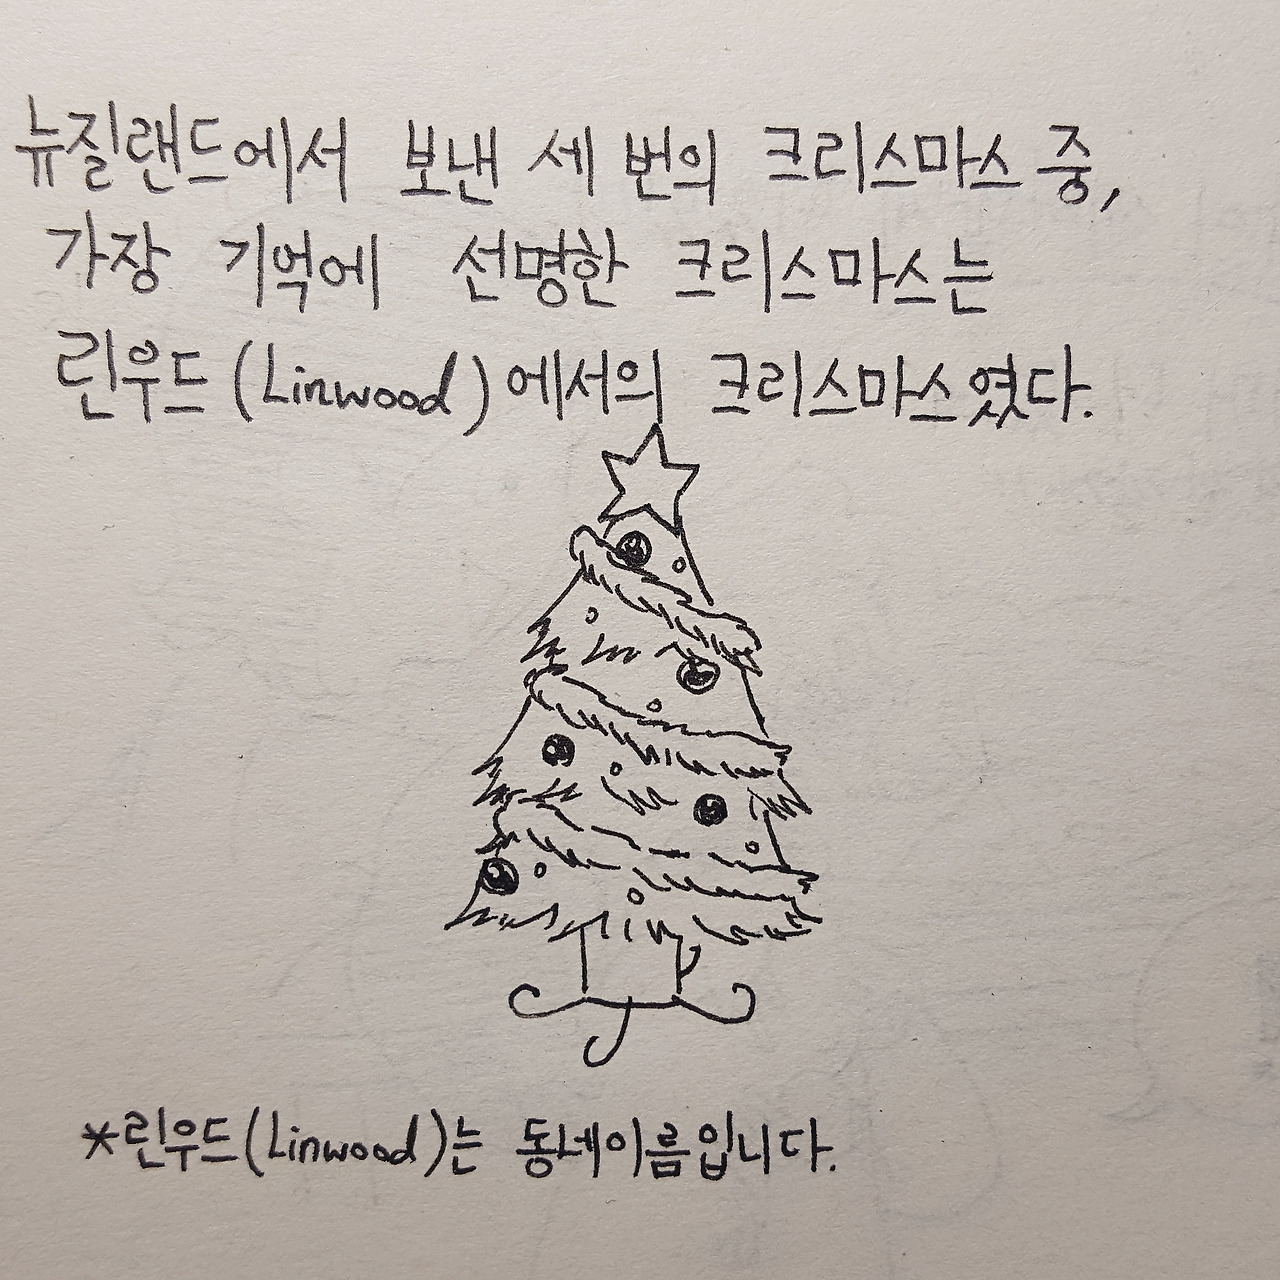 뉴질랜드에서 보낸 세 번의 크리스마스 중,
가장 기억에 선명한 크리스마스는
린우드(Linwood)에서의 크리스마스였다.
*린우드(Linwood)는 동네이름입니다.